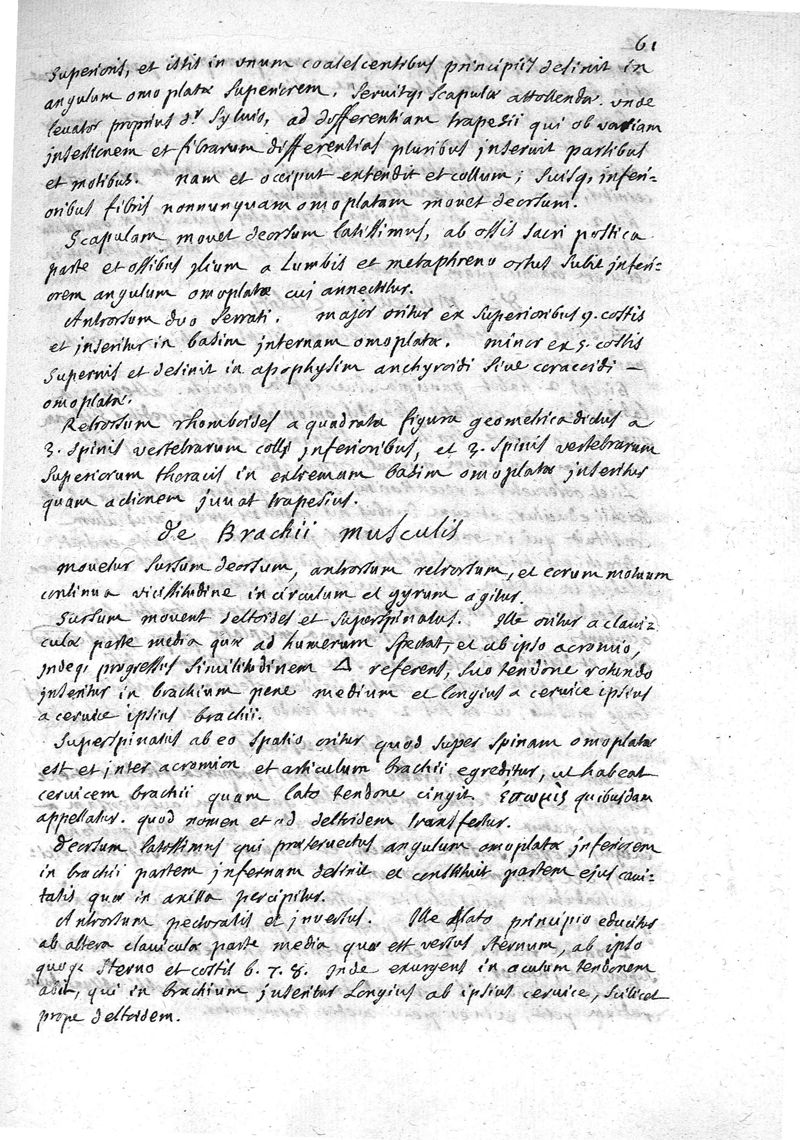 61
superioris, et istis in vnum coalescentibus principiis desinit in
angulum omoplatæ superiorem. seruitqs scapulæ attollendæ. vnde
leuator proprius dr Syluio, ad differentiam trapezii qui ob variam
insertionem et fibrarum differentias pluribus inseruit partibus
et motibus. nam et occiput extendit et collum; suisqs inferi=
oribus fibris nonnunquam omoplatam mouet deorsum.
Scapulam mouet deorsum latissimus, ab ossis sacri postica
parte et ossibus jlium a Lumbis et metaphreno ortus subit jnferi=
orem angulum omoplatæ cui annectitur.
Antrorsum duo serrati. major oritur ex superioribus 9. costis
et jnseritur in basim jnternam omoplatæ. minor ex 5. costis
supernis et desinit in apophysim anchyroidi siue coracoidi –
omoplatæ.
Retrorsum rhomboides a quadrata figura geometrica dictus a
3. spinis vertebrarum colli jnferioribus, et 3. spinis vertebrarum
superiorum thoracis in extremam basim omoplatæ jnseritur
quam actionem juuat trapesius.
de Brachii musculis
mouetur sursum deorsum, antrorsum retrorsum, et eorum motuum
continua vicissitudine in circulum et gyrum agitur.
Sursum mouent deltoides et superspinatus. Ille oritur a claui=
culæ parte media quæ ad humerum spectat, et ab ipso acromio,
jndeqs progressus similitudinem Δ referens, suo tendone rotundo
jnseritur in brachium pene medium et longius a ceruice ipsius
a ceruice ipsius brachii.
Superspinatus ab eo spatio oritur quod super spinam omoplatæ
est et jnter acromion et articulum brachii egreditur, ut habeat
ceruicem brachii quam lato tendone cingit. ἐπωμὶς quibusdam
appellatur. quod nomen et ad deltoidem transfertur.
deorsum latissimus qui præteruectus angulum omoplatæ jnferiorem
in brachii partem jnfernam desinit et constituit partem ejus caui=
tatis quæ in axilla percipitur.
Antrorsum pectoralis et jnuersus. Ille lato principio educitur
ab altera clauiculæ parte media quæ est versus sternum, ab ipso
quoqs sterno et costis 6. 7. 8. jnde exurgens in acutum tendonem
abit, qui in brachium jnseritur Longius ab ipsius ceruice, scilicet
prope deltoidem.